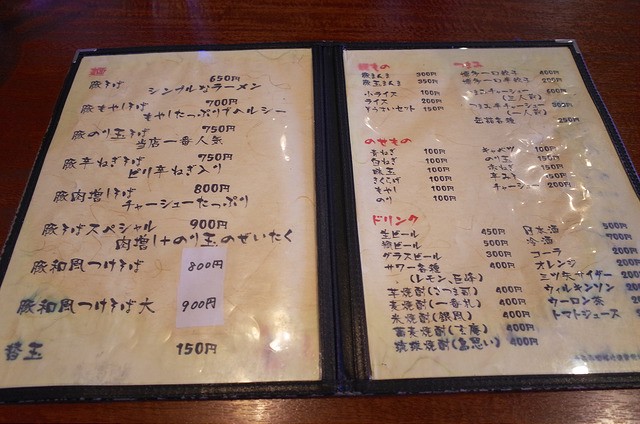 豚そば 650円
シンプルなラーメン
豚もやしそば 700円
もやしたっぷりでヘルシー
豚のり玉そば 750円
当店一番人気
豚辛ねぎそば 750円
ピリ辛ねぎ入り
豚肉増しそば 800円
チャーシューたっぷり
豚そばスペシャル 900円
肉増し+のり玉のぜいたく
豚和風つけそば 800円
豚和風つけそば大 900円
替玉 150円
300円
350円
小ライス 100円
ライス 200円
ぞうすいセット 150円
400円
のせもの
青ねぎ 100円
白ねぎ 100円
100円
きくらげ 100円
もやし 100円
のり 100円
キャベツ 100円
のり玉 150円
150円
150円
チャーシュー 200円
ドリンク
生ビール 450円
瓶ビール 500円
グラスビール 300円
サワー各種 400円
(レモン、巨峰)
芋焼酎(さつま司) 400円
麦焼酎(一番札) 400円
米焼酎(銀風) 400円
蕎麦焼酎 400円
琉球焼酎(島思い) 400円
日本酒 500円
冷酒 700円
コーラ 200円
オレンジ 200円
三ツ矢サイダー 200円
ウィルキンソン
ウーロン茶
トマトジュース